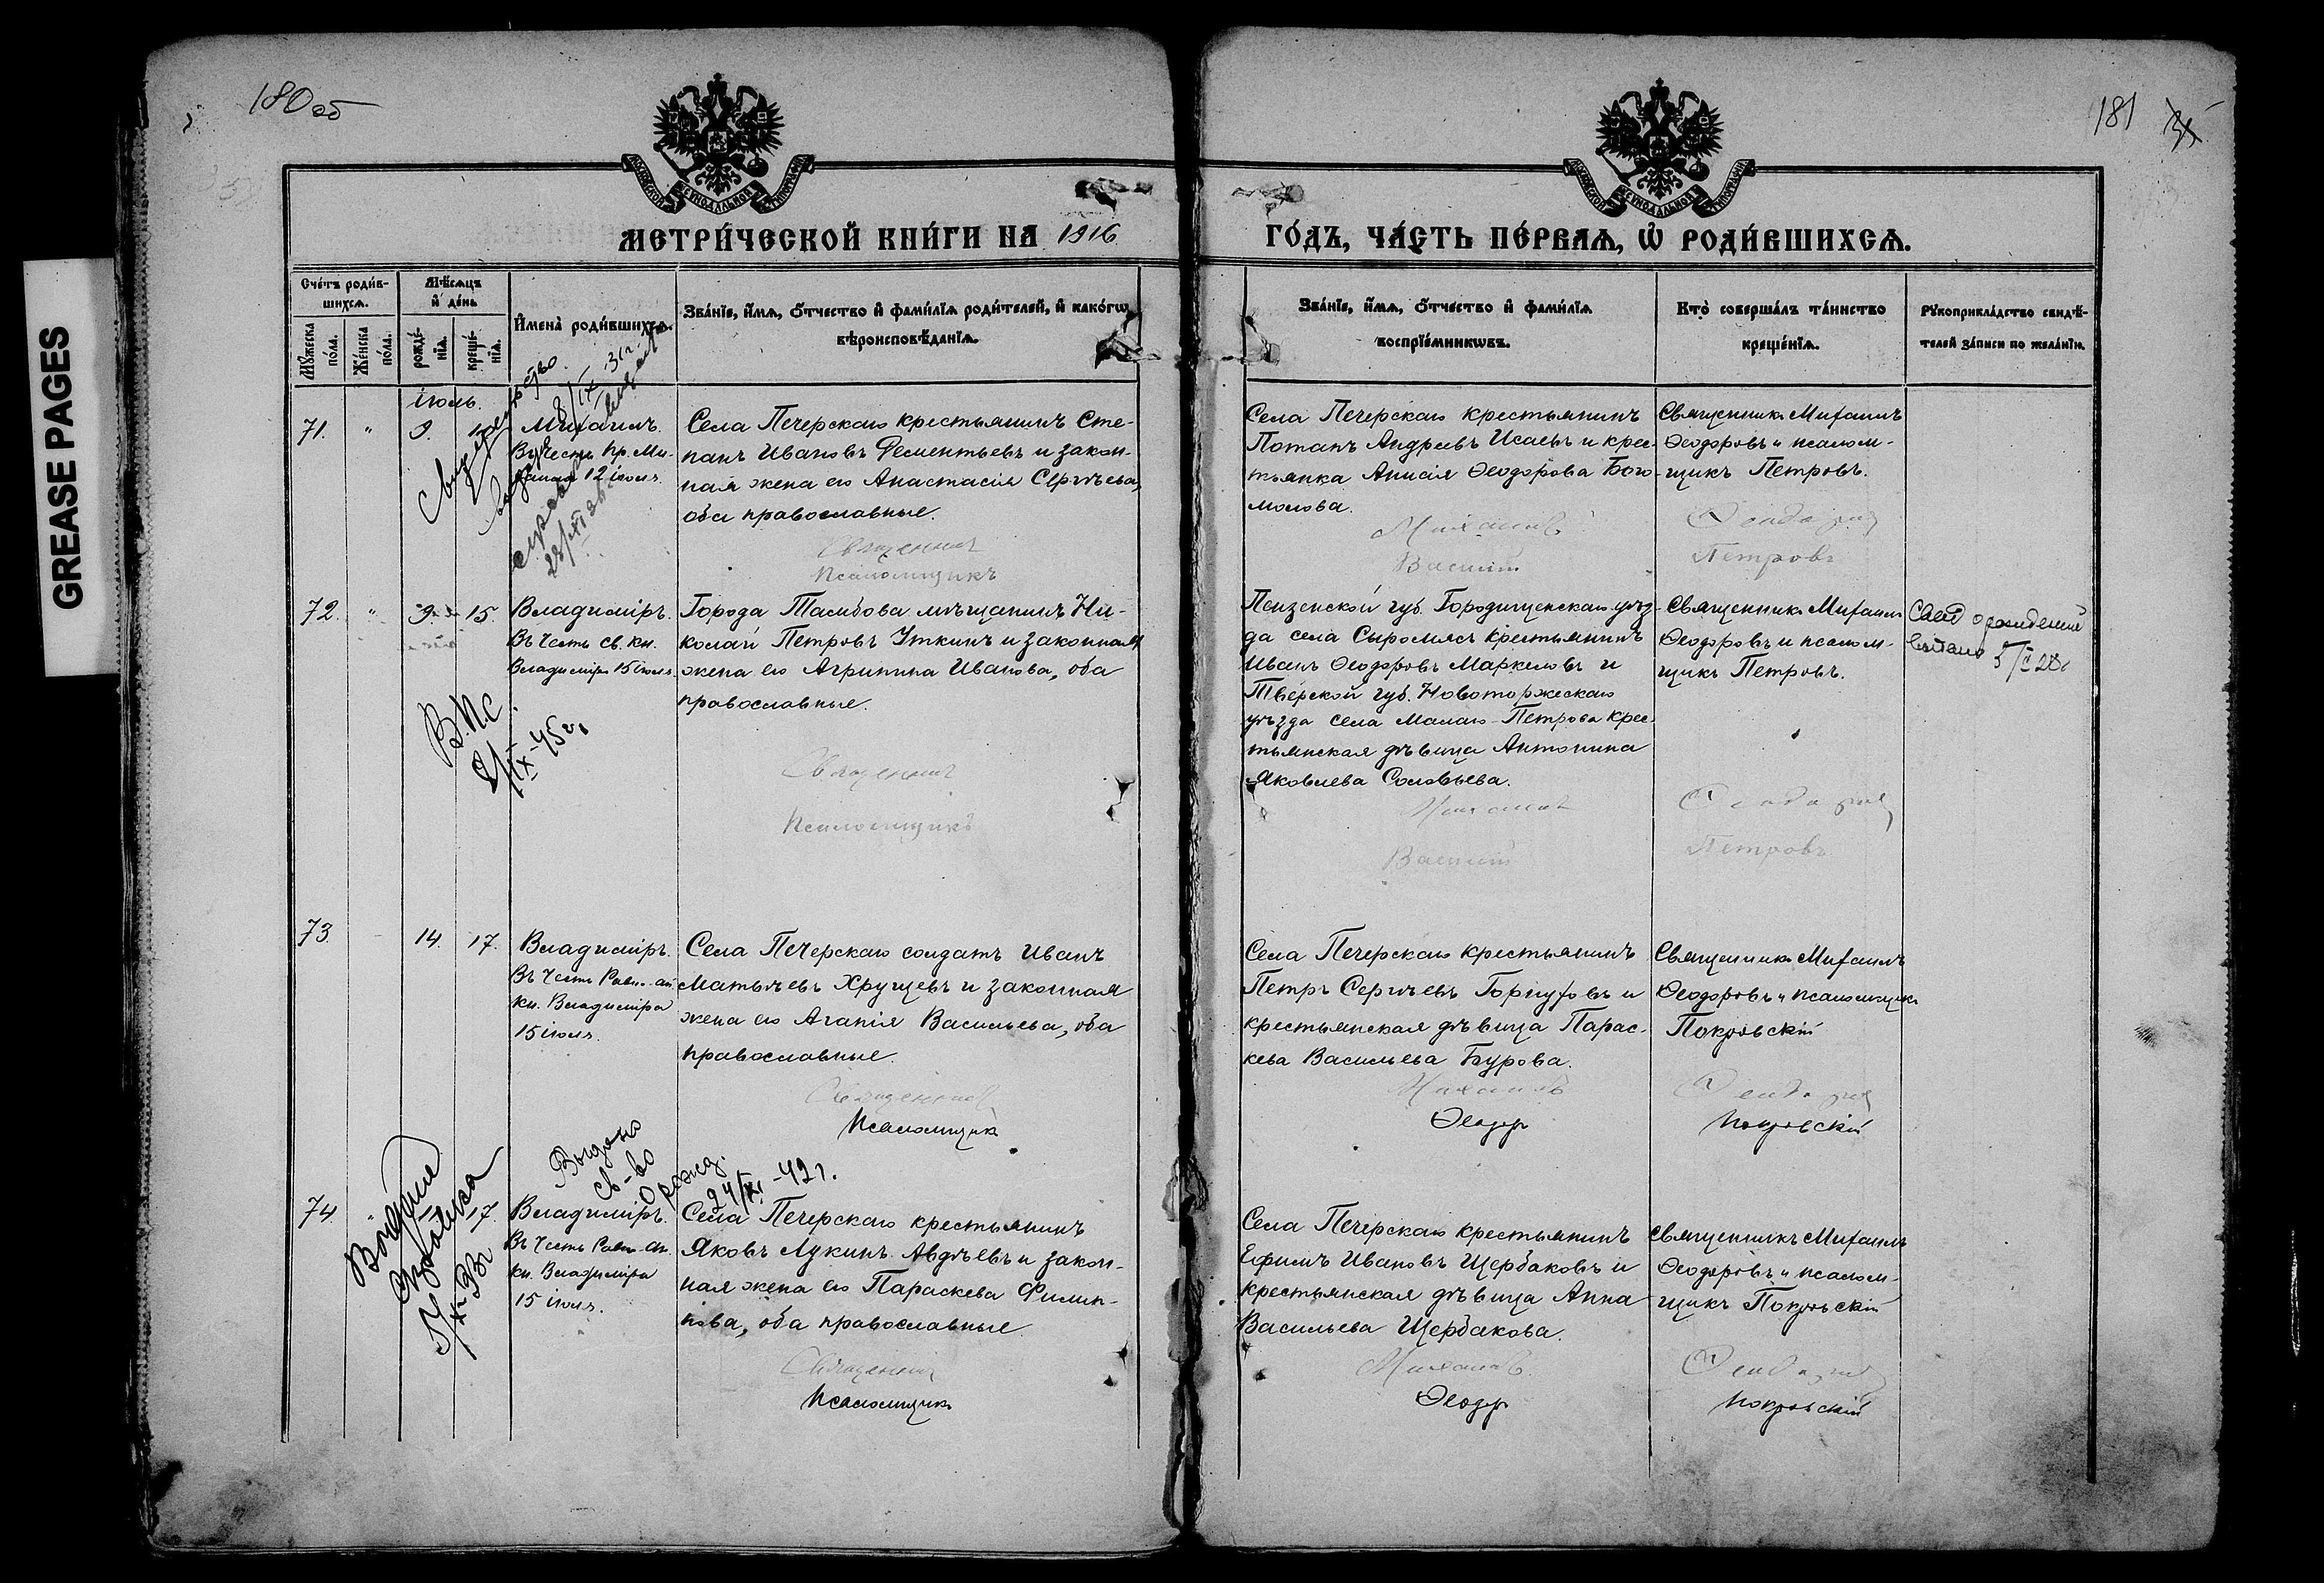 GREASE PAGES
180 об
181
МОСКОВСКОЙ СѴНОДАЛЬНОЙ ТИПОГРАФІИ
МОСКОВСКОЙ СѴНОДАЛЬНОЙ ТИПОГРАФІИ
МЕТРИ́ЧЕСКОЙ КНИ́ГИ НА 1916
ГО́ДЪ, ЧА́СТЬ ПЕ́РВАѦ, Ѡ҆ РОДИ́ВШИХСѦ.
Сче́тъ роди́в-
шихсѧ.
Мꙋ́жеска
по́ла.
Же́нска
по́ла.
Мѣ́сѧцъ
и҆ де́нь
рожде́-
нїѧ.
креще́-
нїѧ.
И҆мена̀ роди́вшихсѧ.
Зва́нїе, и҆́мѧ, ѻ҆́тчество и҆ фами́лїѧ роди́телей, и҆ како́гѡ
вѣроисповѣ́данїѧ.
Зва́нїе, и҆́мѧ, ѻ҆́тчество и҆ фами́лїѧ
воспрїе́мникѡвъ.
Кто̀ соверша́лъ та́инство
креще́нїѧ.
Рꙋкоприкла́дство свидѣ́-
телей за́писи по жела́нїю.
іюль.
71.
"
9.
Михаилъ.
Въ честь пр. Ми-
хаила 12 іюля.
Села Печерскаго крестьянинъ Сте-
панъ Ивановъ Дементьевъ и закон-
ная жена его Анастасія Сергѣева,
оба православные.
Священник
Псаломщикъ
Села Печерскаго крестьянинъ
Потапъ Андреевъ Исаевъ и крес-
тьянка Анисія Ѳеодорова Бого-
молова.
Михаилъ
Василій
Священникъ Михаилъ
Ѳеодоровъ и псалом-
щикъ Петровъ.
Петровъ
72.
"
9.
15.
Владиміръ.
Въ честь св. кн.
Владиміра 15 іюля.
В.П.С.
IX-45 г.
Города Тамбова мѣщанинъ Ни-
колай Петровъ Уткинъ и законная
жена его Агрипина Иванова, оба
православные.
Священник
Псаломщикъ
Пензенской губ. Городищенскаго уѣз-
да села Сыромясъ крестьянинъ
Иванъ Ѳеодоровъ Маркеловъ и
Тверской губ. Новоторжескаго
уѣзда села Малаго-Петрова крес-
тьянская дѣвица Антонина
Яковлева Соловьева.
Михаилъ
Василій
Священникъ Михаилъ
Ѳеодоровъ и псалом-
щикъ Петровъ.
Петровъ
73.
14.
17.
Владиміръ.
Въ честь Равн.-ап.
кн. Владиміра
15 іюля.
Села Печерскаго солдатъ Иванъ
Матвѣевъ Хрущевъ и законная
жена его Агапія Васильева, оба
православные.
Священник
Псаломщик
Села Печерскаго крестьянинъ
Петръ Сергѣевъ Горнуховъ и
крестьянская дѣвица Парас-
кева Васильева Бурова.
Михаилъ
Ѳеодор
Священникъ Михаилъ
Ѳеодоровъ и псаломщикъ
Покровскій
Покровскій
Выдано
св-во
о рожд.
24/XI-42 г.
74.
17.
Владиміръ.
Въ честь Равн.-ап.
кн. Владиміра
15 іюля.
Села Печерскаго крестьянинъ
Яковъ Лукинъ Авдѣевъ и закон-
ная жена его Параскева Филип-
пова, оба православные
Священник
Псаломщик
Села Печерскаго крестьянинъ
Ефимъ Ивановъ Щербаковъ и
крестьянская дѣвица Анна
Васильева Щербакова.
Михаилъ
Ѳеодор
Священникъ Михаилъ
Ѳеодоровъ и псалом-
щикъ Покровскій
Покровскій